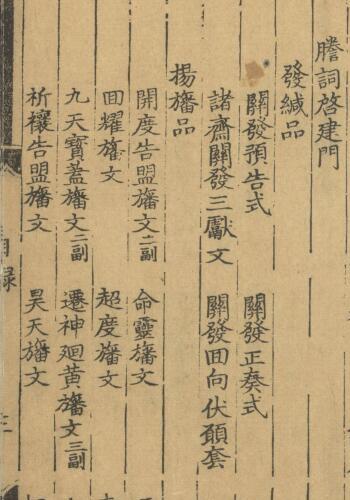 謄詞啓建門
發緘品
關發預告式　關發正奏式
諸齋關發三獻文　關發囬向伏願套
揚旛品
開度告盟旛文二副　命靈旛文
囬耀旛文　超度旛文
九天寳蓋旛文二副　遷神廻黄旛文三副
祈禳告盟旛文　昊天旛文
目録
三